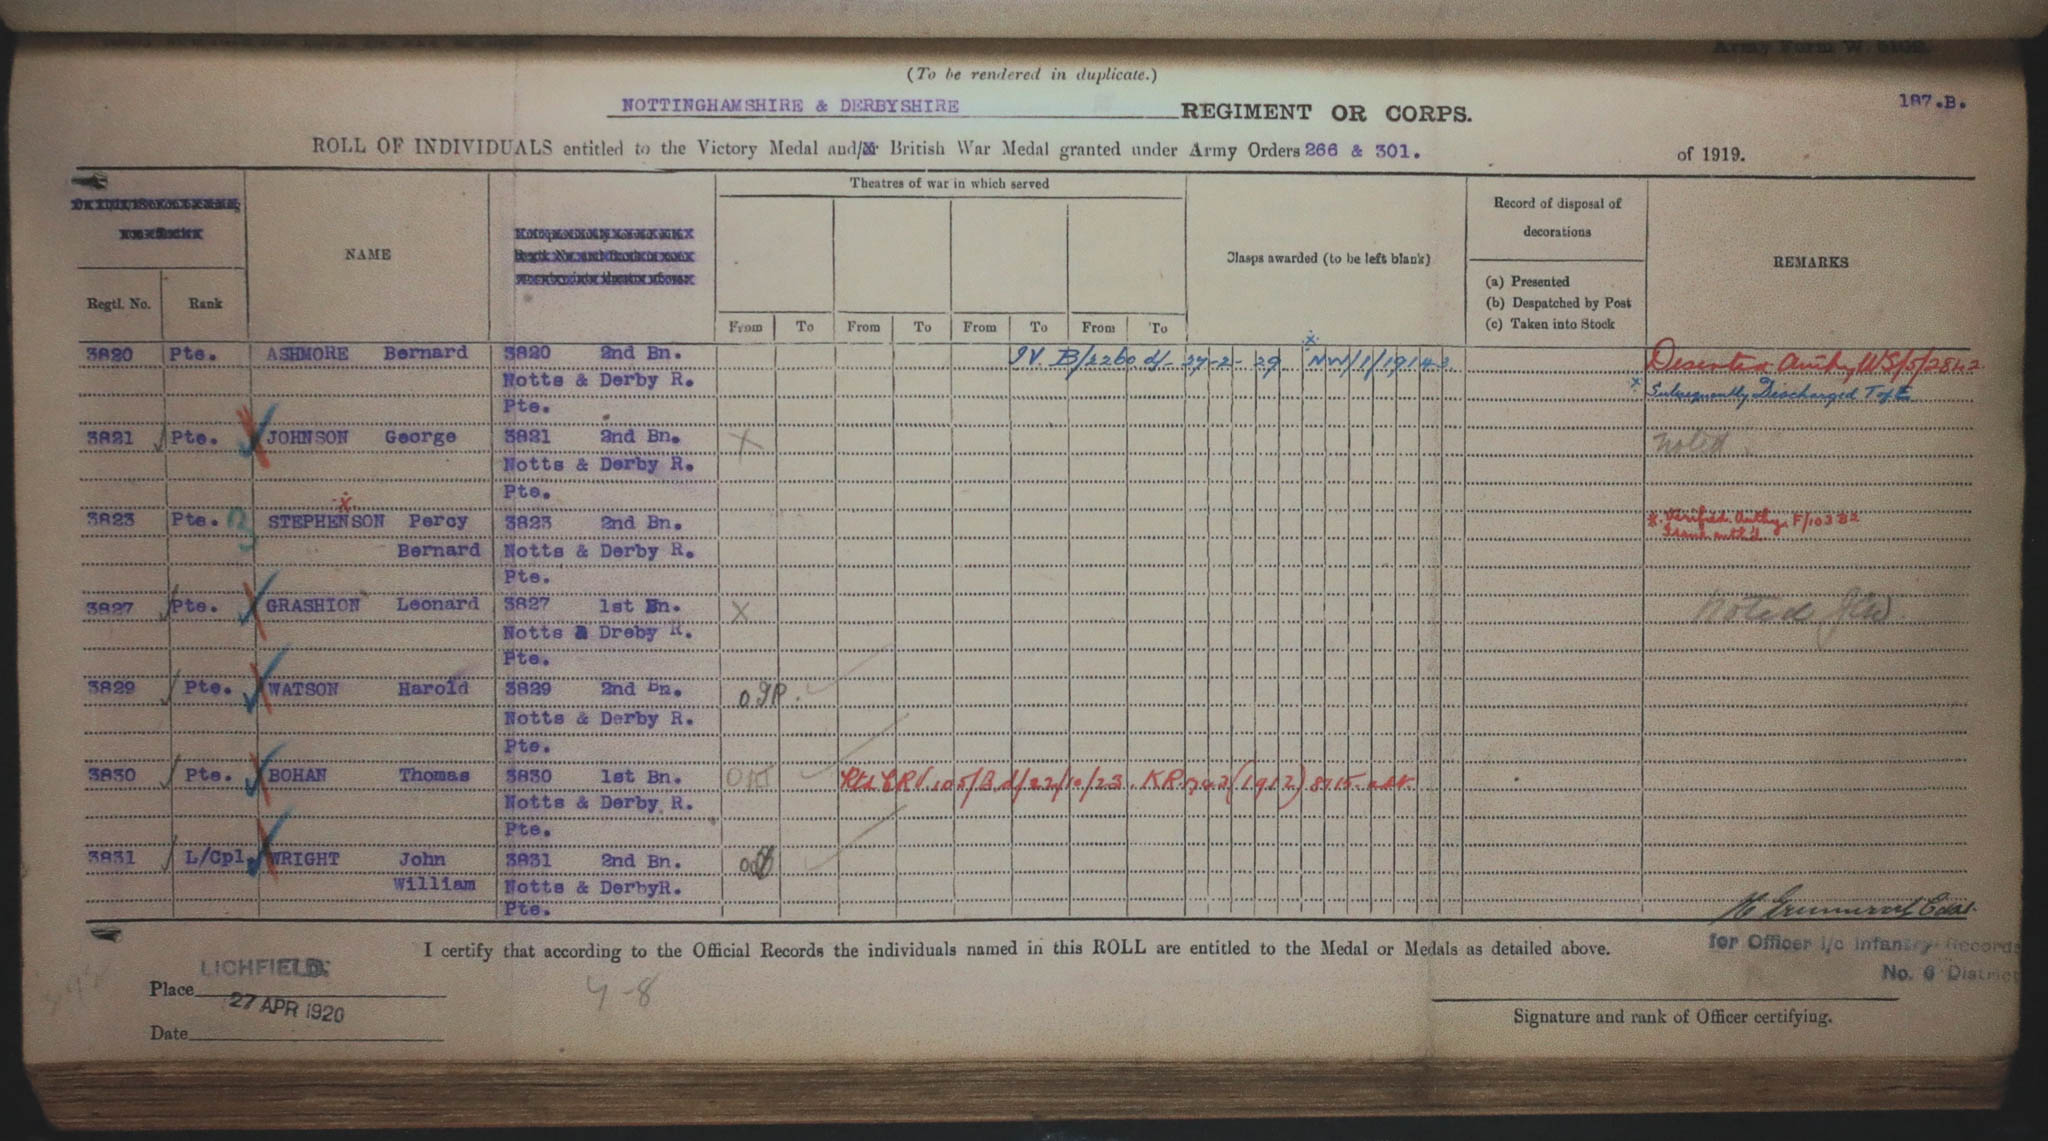 Army Form W. 5102.
(To be rendered in duplicate.)
NOTTINGHAMSHIRE & DERBYSHIRE REGIMENT OR CORPS.
187.B.
ROLL OF INDIVIDUALS entitled to the Victory Medal and/or British War Medal granted under Army Orders 266 & 301. of 1919.
Regtl. No.
Rank
NAME
Theatres of war in which served
From To From To From To From To
Clasps awarded (to be left blank)
Record of disposal of
decorations
(a) Presented
(b) Despatched by Post
(c) Taken into Stock
REMARKS
3820 Pte. ASHMORE Bernard 3820 2nd Bn. IV. B/2260 d/- 27-2-29 x NW/1/19143. Deserted Authy WS/5/2842
Notts & Derby R. x Subsequently Discharged
Pte.
3821 Pte. JOHNSON George 3821 2nd Bn. X Noted
Notts & Derby R.
Pte.
3823 Pte. STEPHENSON Percy 3823 2nd Bn. x. Verified. Authy. F/10382
Bernard Notts & Derby R.
Pte.
3827 Pte. GRASHION Leonard 3827 1st Bn. X Noted
Notts & Dreby R.
Pte.
3829 Pte. WATSON Harold 3829 2nd Bn.
Notts & Derby R.
Pte.
3830 Pte. BOHAN Thomas 3830 1st Bn. 105/B d/22/10/23. KR. (1912) 8715
Notts & Derby R.
Pte.
3831 L/Cpl. WRIGHT John 3831 2nd Bn.
William Notts & DerbyR.
Pte.
I certify that according to the Official Records the individuals named in this ROLL are entitled to the Medal or Medals as detailed above.
for Officer i/c Infantry Records
No. 6 District
LICHFIELD.
Place
27 APR 1920
Date
4-8
Signature and rank of Officer certifying.